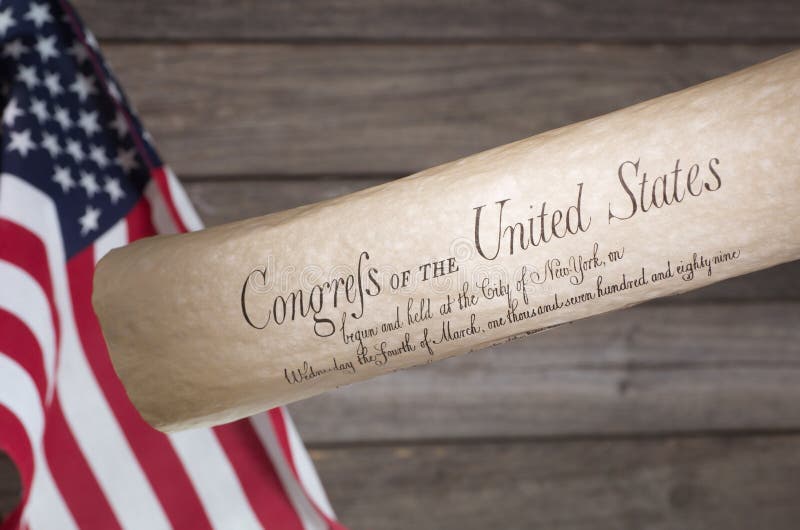 Congreſs OF THE United States
begun and held at the City of New-York, on
Wednesday the Fourth of March, one thousand seven hundred and eighty nine